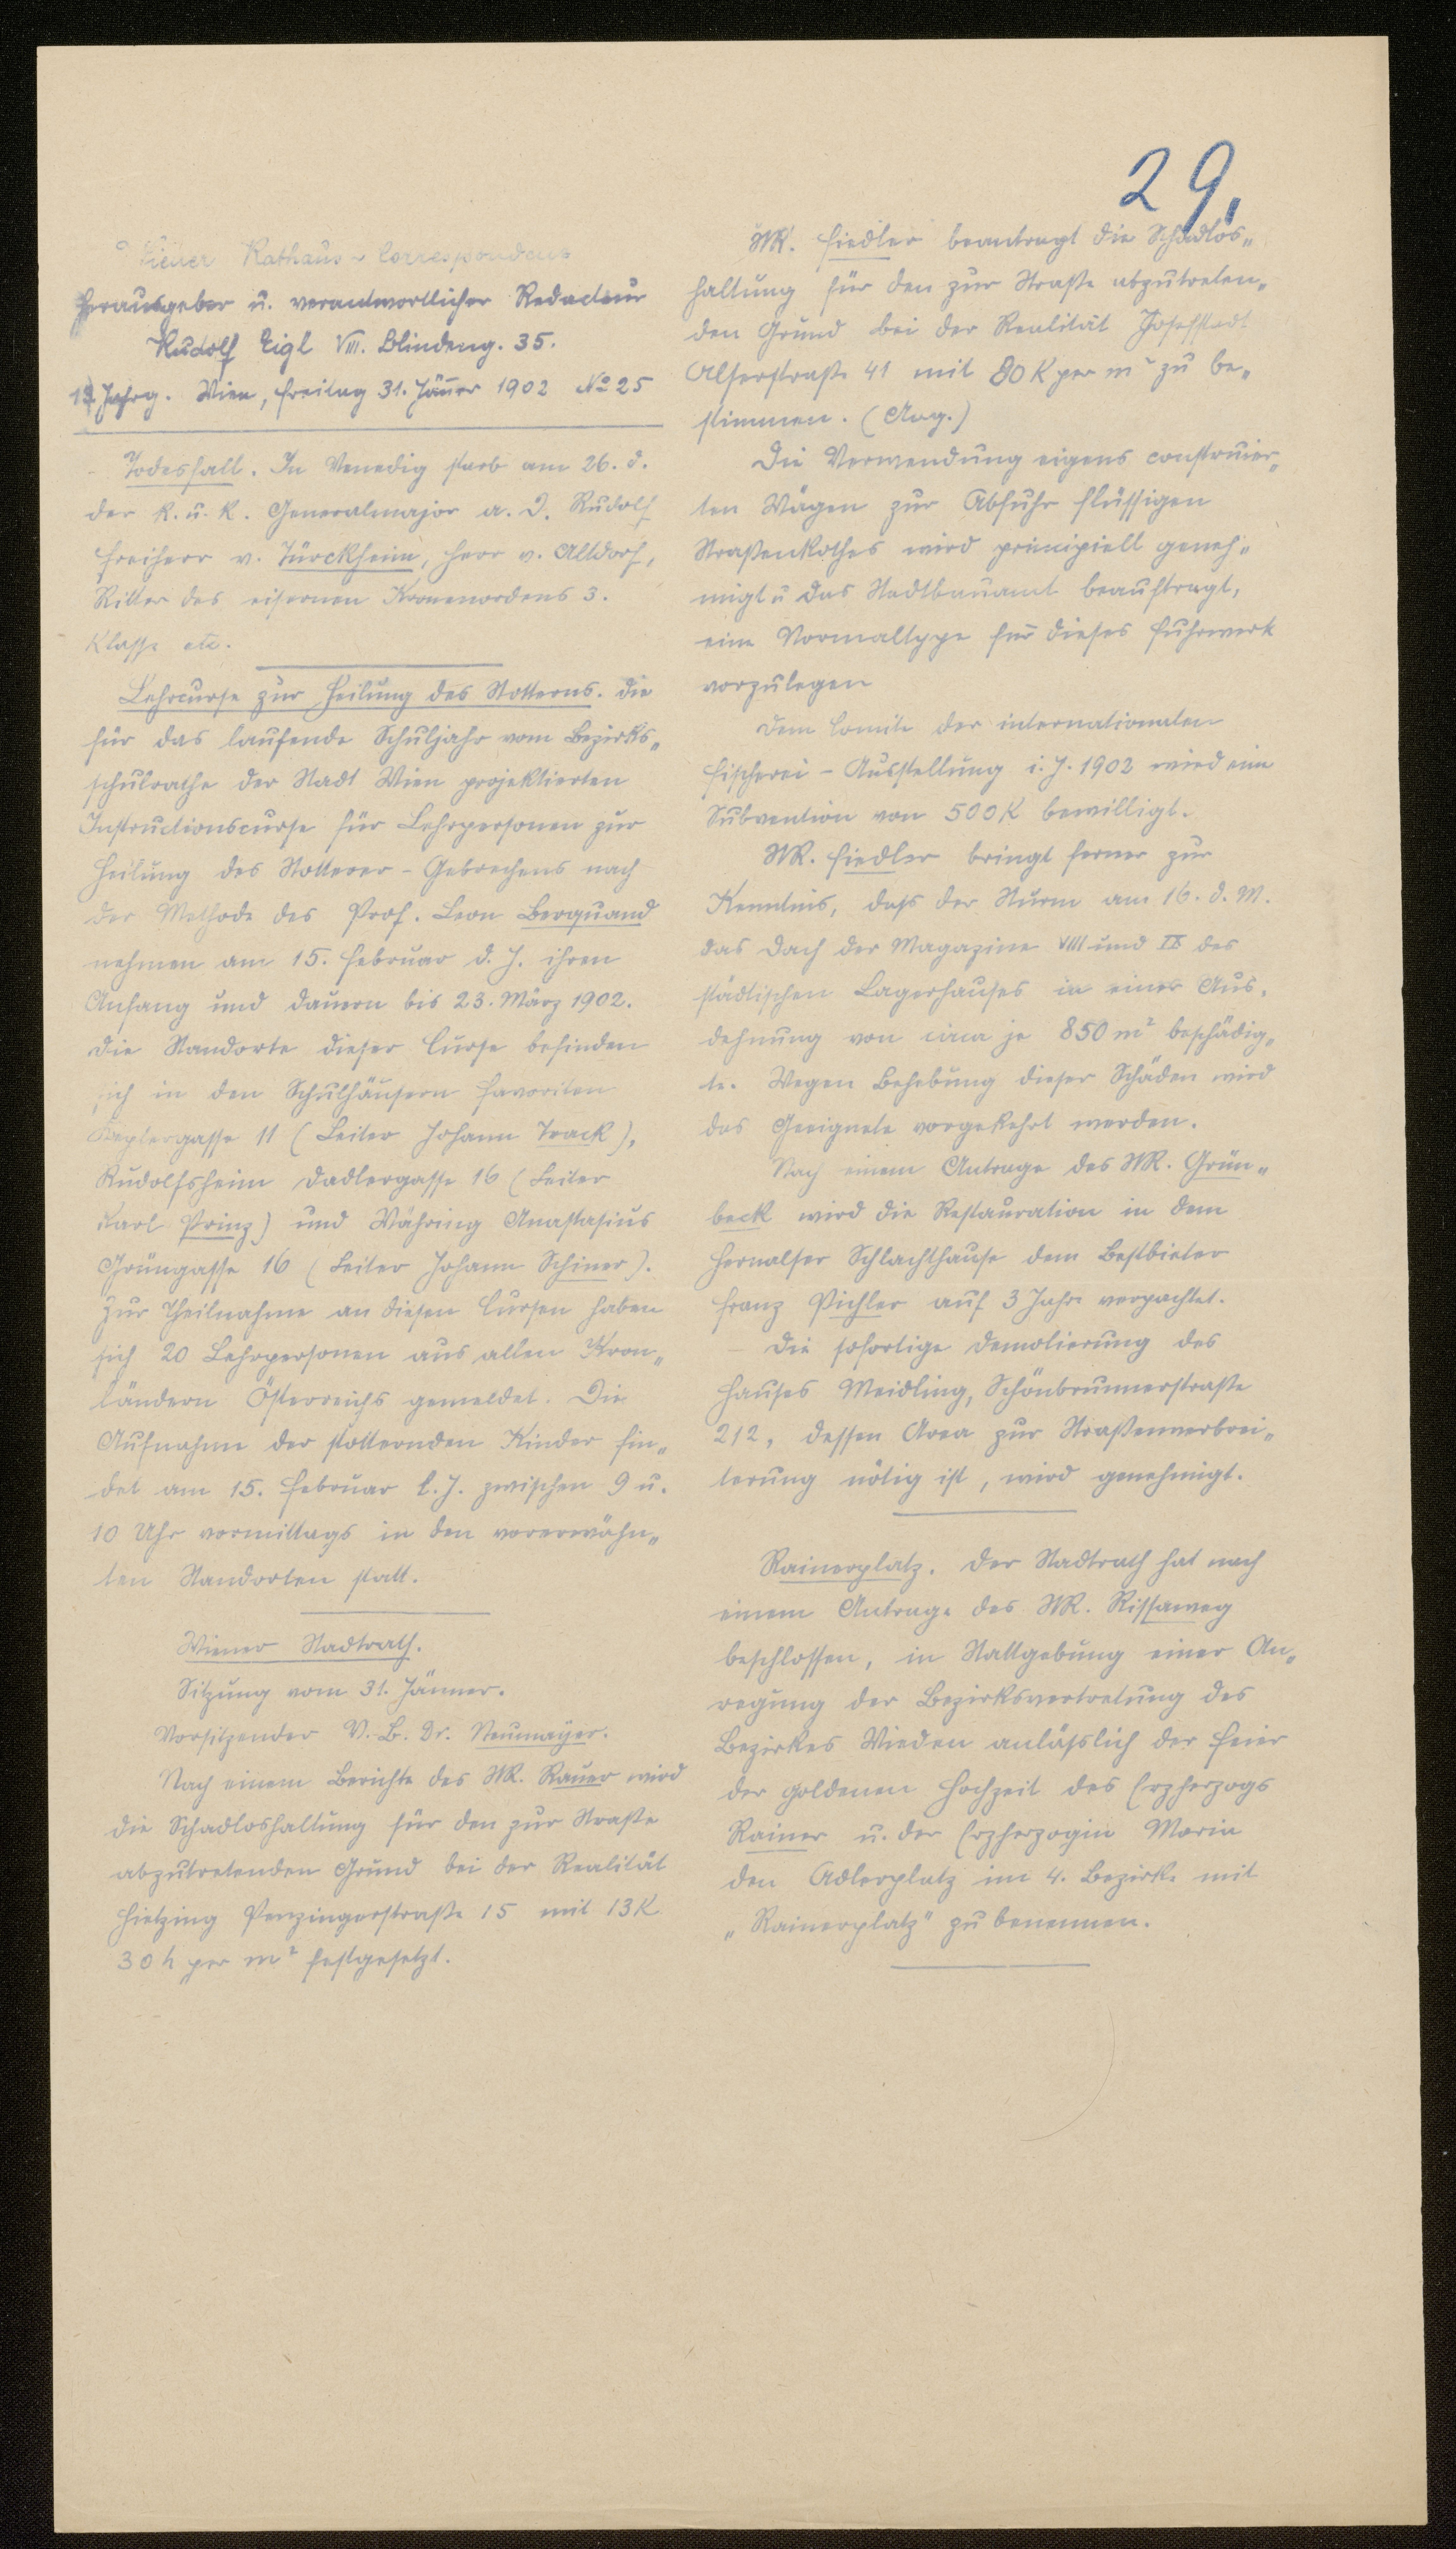 29.
Wiener Rathaus-Correspondenz
Herausgeber u. verantwortlicher Redacteur
Rudolf Eigl VIII. Blindeng. 35.
Jahrg. Wien, Freitag 31. Jänner 1902 No 25
Todesfall. In Venedig starb am 26. d.
der k. u. k. Generalmajor a. D. Rudolf
Freiherr v. Türckheim, Herr v. Altdorf,
Ritter des eisernen Kronenordens 3.
Klasse etc.
Lehrcurse zur Heilung des Stotterns. Die
für das laufende Schuljahr vom Bezirks„
schulrathe der Stadt Wien projektierten
Instructionscurse für Lehrpersonen zur
Heilung des Stotterer-Gebrechens nach
der Methode des Prof. Leon Berquand
nehmen am 15. Februar d. J. ihren
Anfang und dauern bis 23. März 1902.
Die Standorte dieser Curse befinden
sich in den Schulhäusern Favoriten
Keplergasse 11 (Leiter Johann Track),
Rudolfsheim Dadlergasse 16 (Leiter
Karl Prinz) und Währing Anastasius
Grüngasse 16 (Leiter Johann Schiner).
Zur Theilnahme an diesen Cursen haben
sich 20 Lehrpersonen aus allen Kron„
ländern Österreichs gemeldet. Die
Aufnahme der stotternden Kinder fin„
det am 15. Februar l. J. zwischen 9 u.
10 Uhr vormittags in den vorerwähn„
ten Standorten statt.
Wiener Stadtrath.
Sitzung vom 31. Jänner.
Vorsitzender V.-B. Dr. Neumayer.
Nach einem Berichte des StR. Rauer wird
die Schadloshaltung für den zur Straße
abzutretenden Grund bei der Realität
Hietzing Penzingerstraße 15 mit 13 K
30 h per m² festgesetzt.
StR. Fiedler beantragt die Schadlos„
haltung für den zur Straße abzutreten„
den Grund bei der Realität Josefstadt
Alserstraße 41 mit 80 K per m² zu be„
stimmen. (Ang.)
Die Verwendung eigens construier„
ten Wägen zur Abfuhr flüssigen
Straßenkothes wird principiell geneh„
migt u das Stadtbauamt beauftragt,
eine Normaltype für dieses Fuhrwerk
vorzulegen
Dem Comite der internationalen
Fischerei-Ausstellung i. J. 1902 wird eine
Subvention von 500 K bewilligt.
StR. Fiedler bringt ferner zur
Kenntnis, dass der Sturm am 16. d. M.
das Dach der Magazine VIII und IX des
städtischen Lagerhauses in einer Aus„
dehnung von circa je 850 m² beschädig„
te. Wegen Behebung dieser Schäden wird
das Geeignete vorgekehrt werden.
Nach einem Antrage des StR. Grün„
beck wird die Restauration in dem
Hernalser Schlachthause dem Bestbieter
Franz Pichler auf 3 Jahre verpachtet.
Die sofortige Demolierung des
Hauses Meidling, Schönbrunnerstraße
212, dessen Area zur Straßenverbrei„
terung nötig ist, wird genehmigt.
Rainerplatz. Der Stadtrath hat nach
einem Antrage des StR. Rissaweg
beschlossen, in Stattgebung einer An„
regung der Bezirksvertretung des
Bezirkes Wieden anlässlich der Feier
der goldenen Hochzeit des Erzherzogs
Rainer u. der Erzherzogin Maria
den Adlerplatz im 4. Bezirke mit
„Rainerplatz" zu benennen.